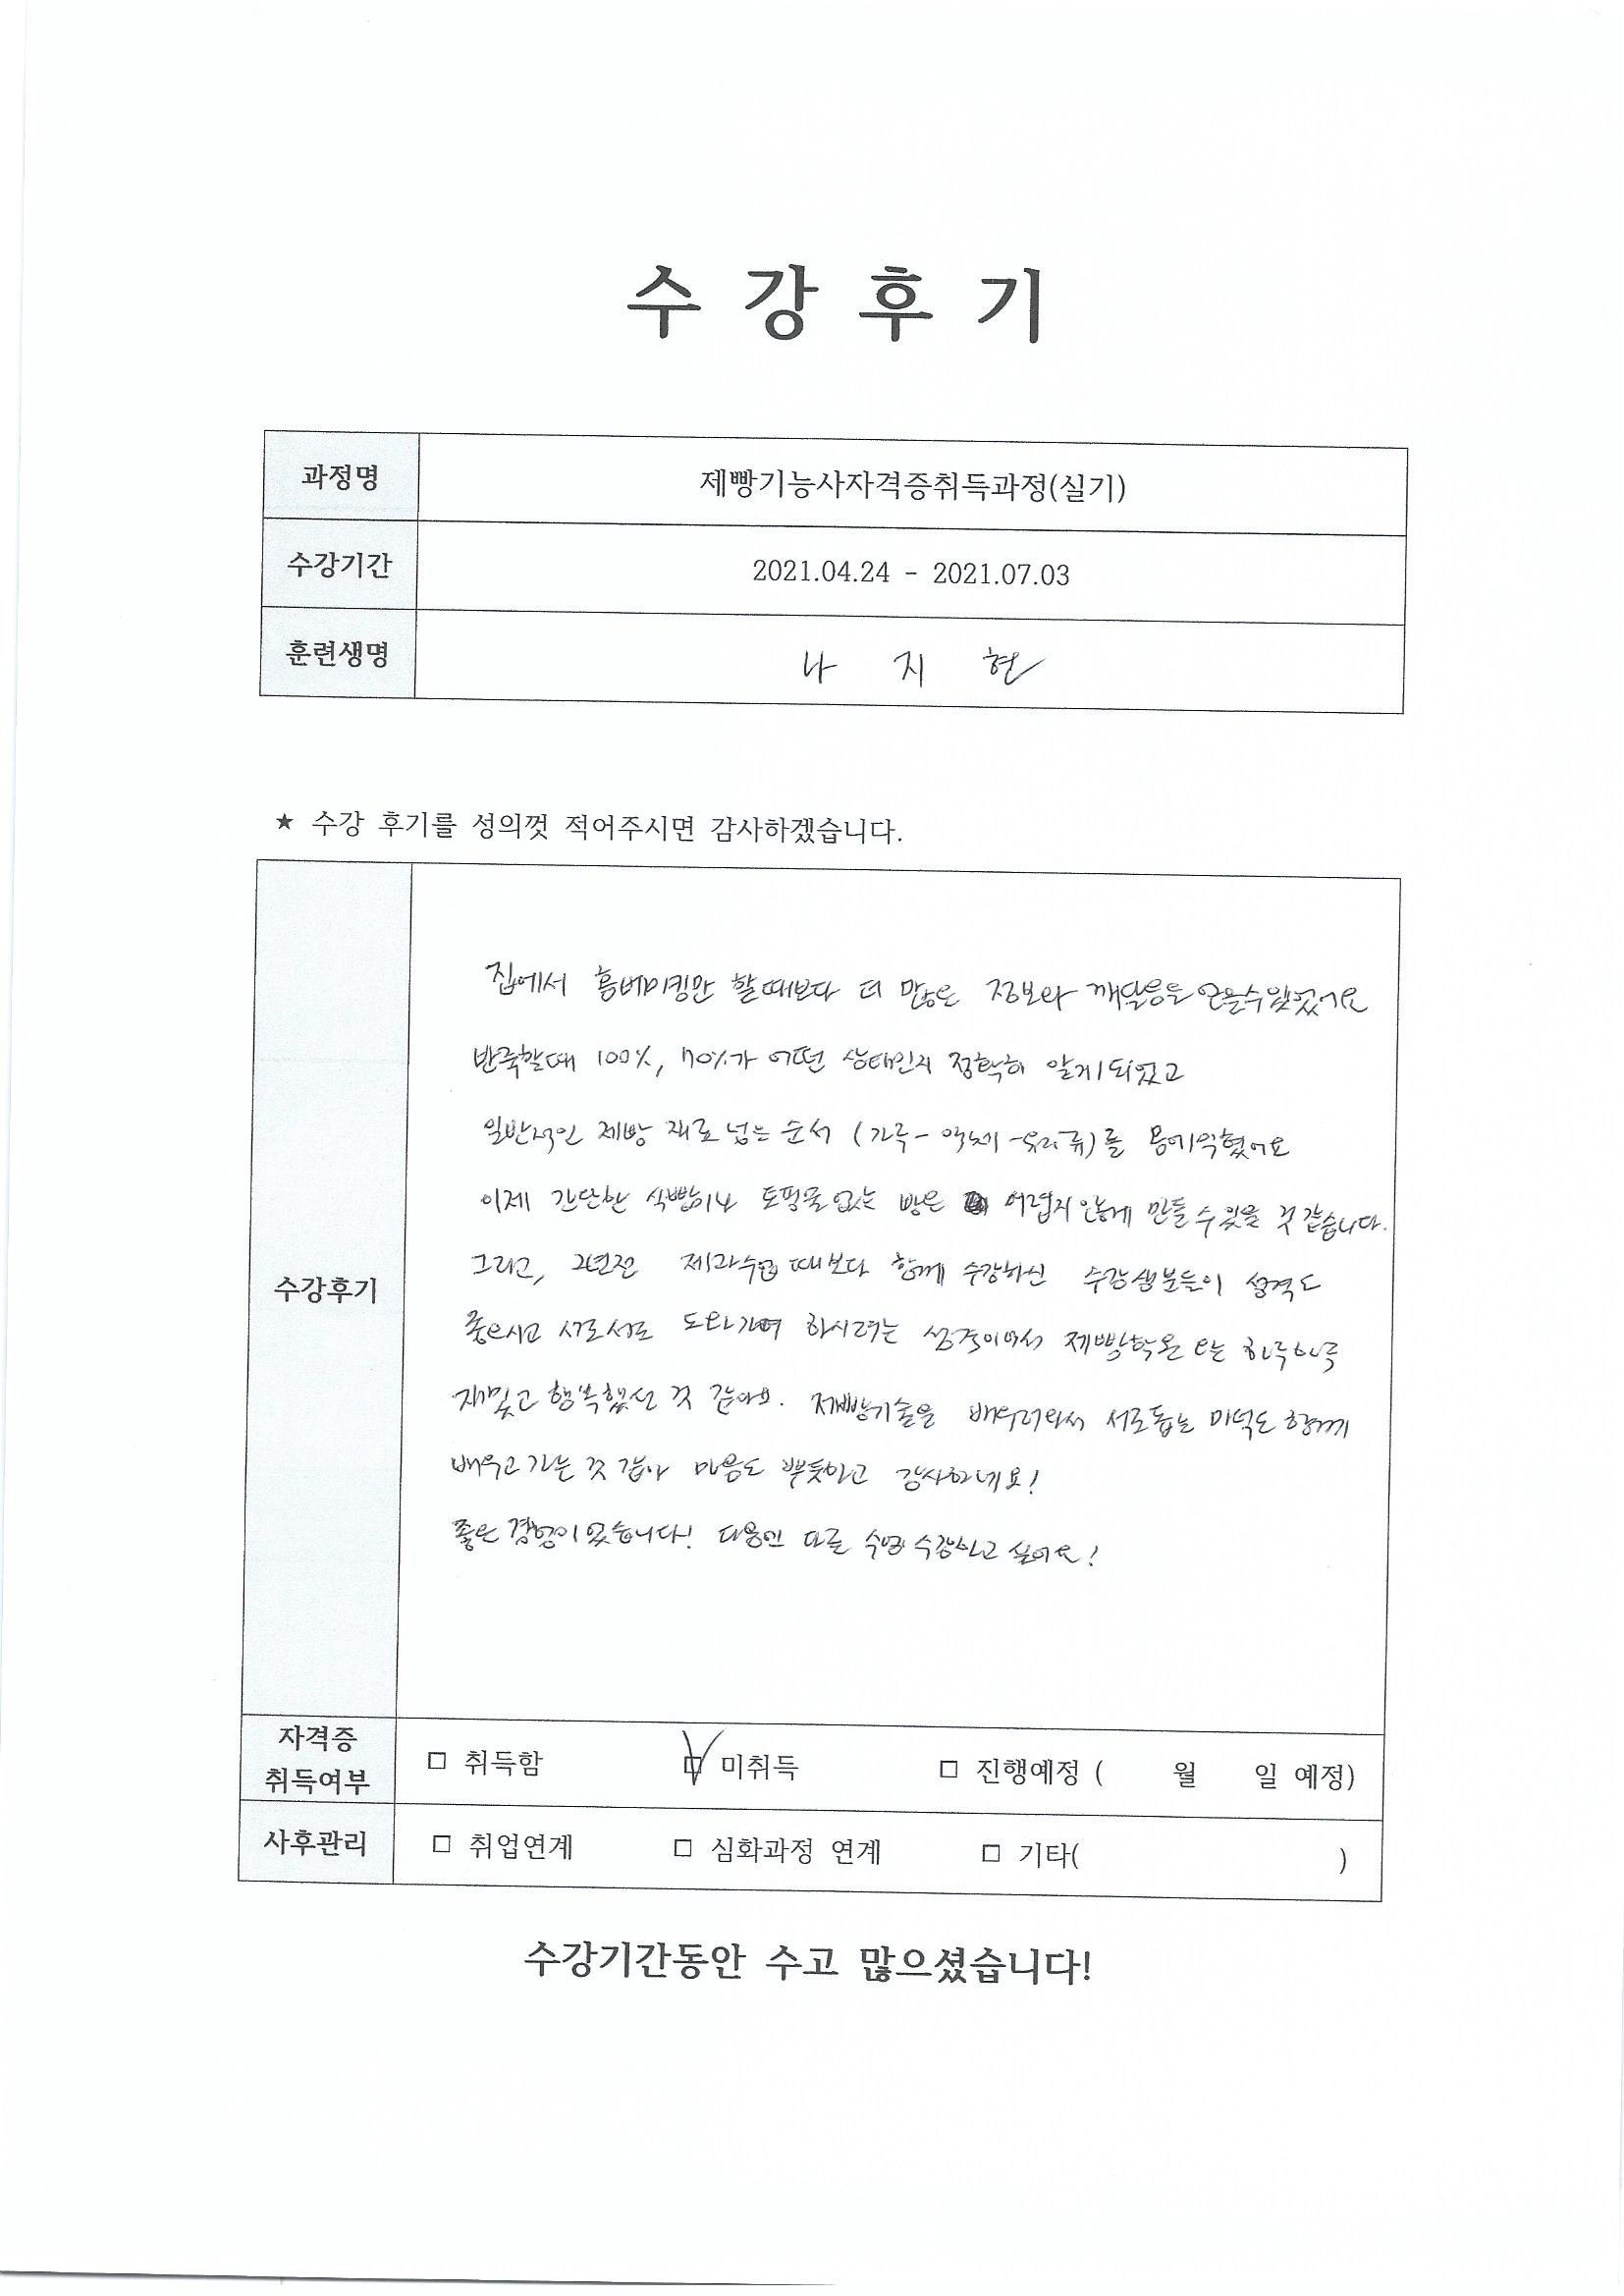 수 강 후 기
과정명 제빵기능사자격증취득과정(실기)
수강기간 2021.04.24 - 2021.07.03
훈련생명 나 지 현
★ 수강 후기를 성의껏 적어주시면 감사하겠습니다.
집에서 홈베이킹만 할때보다 더 많은 정보와 깨달음을 얻을수있었어요
반죽할때 100%, 70%가 어떤 상태인지 정확히 알게되었고
일반적인 제빵 재료 넣는 순서 (가루- 액체 -유지류)를 몸에익혔어요
이제 간단한 식빵이나 토핑물없는 빵은 어렵지않게 만들 수 있을 것 같습니다.
그리고, 2년전 제과수업 때보다 함께 수강하신 수강생분들이 성격도
좋으시고 서로서로 도와가며 하시려는 성격이어서 제빵학원 오는 하루하루
재밌고 행복했던 것 같아요. 제빵기술을 배우러와서 서로돕는 미덕도 함께
배우고 가는 것 같아 마음도 뿌듯하고 감사하네요!
좋은 경험이었습니다! 다음엔 다른 수업 수강하고 싶어요!
수강후기
자격증
취득여부 □ 취득함 □ 미취득 □ 진행예정 ( 월 일 예정)
사후관리 □ 취업연계 □ 심화과정 연계 □ 기타( )
수강기간동안 수고 많으셨습니다!